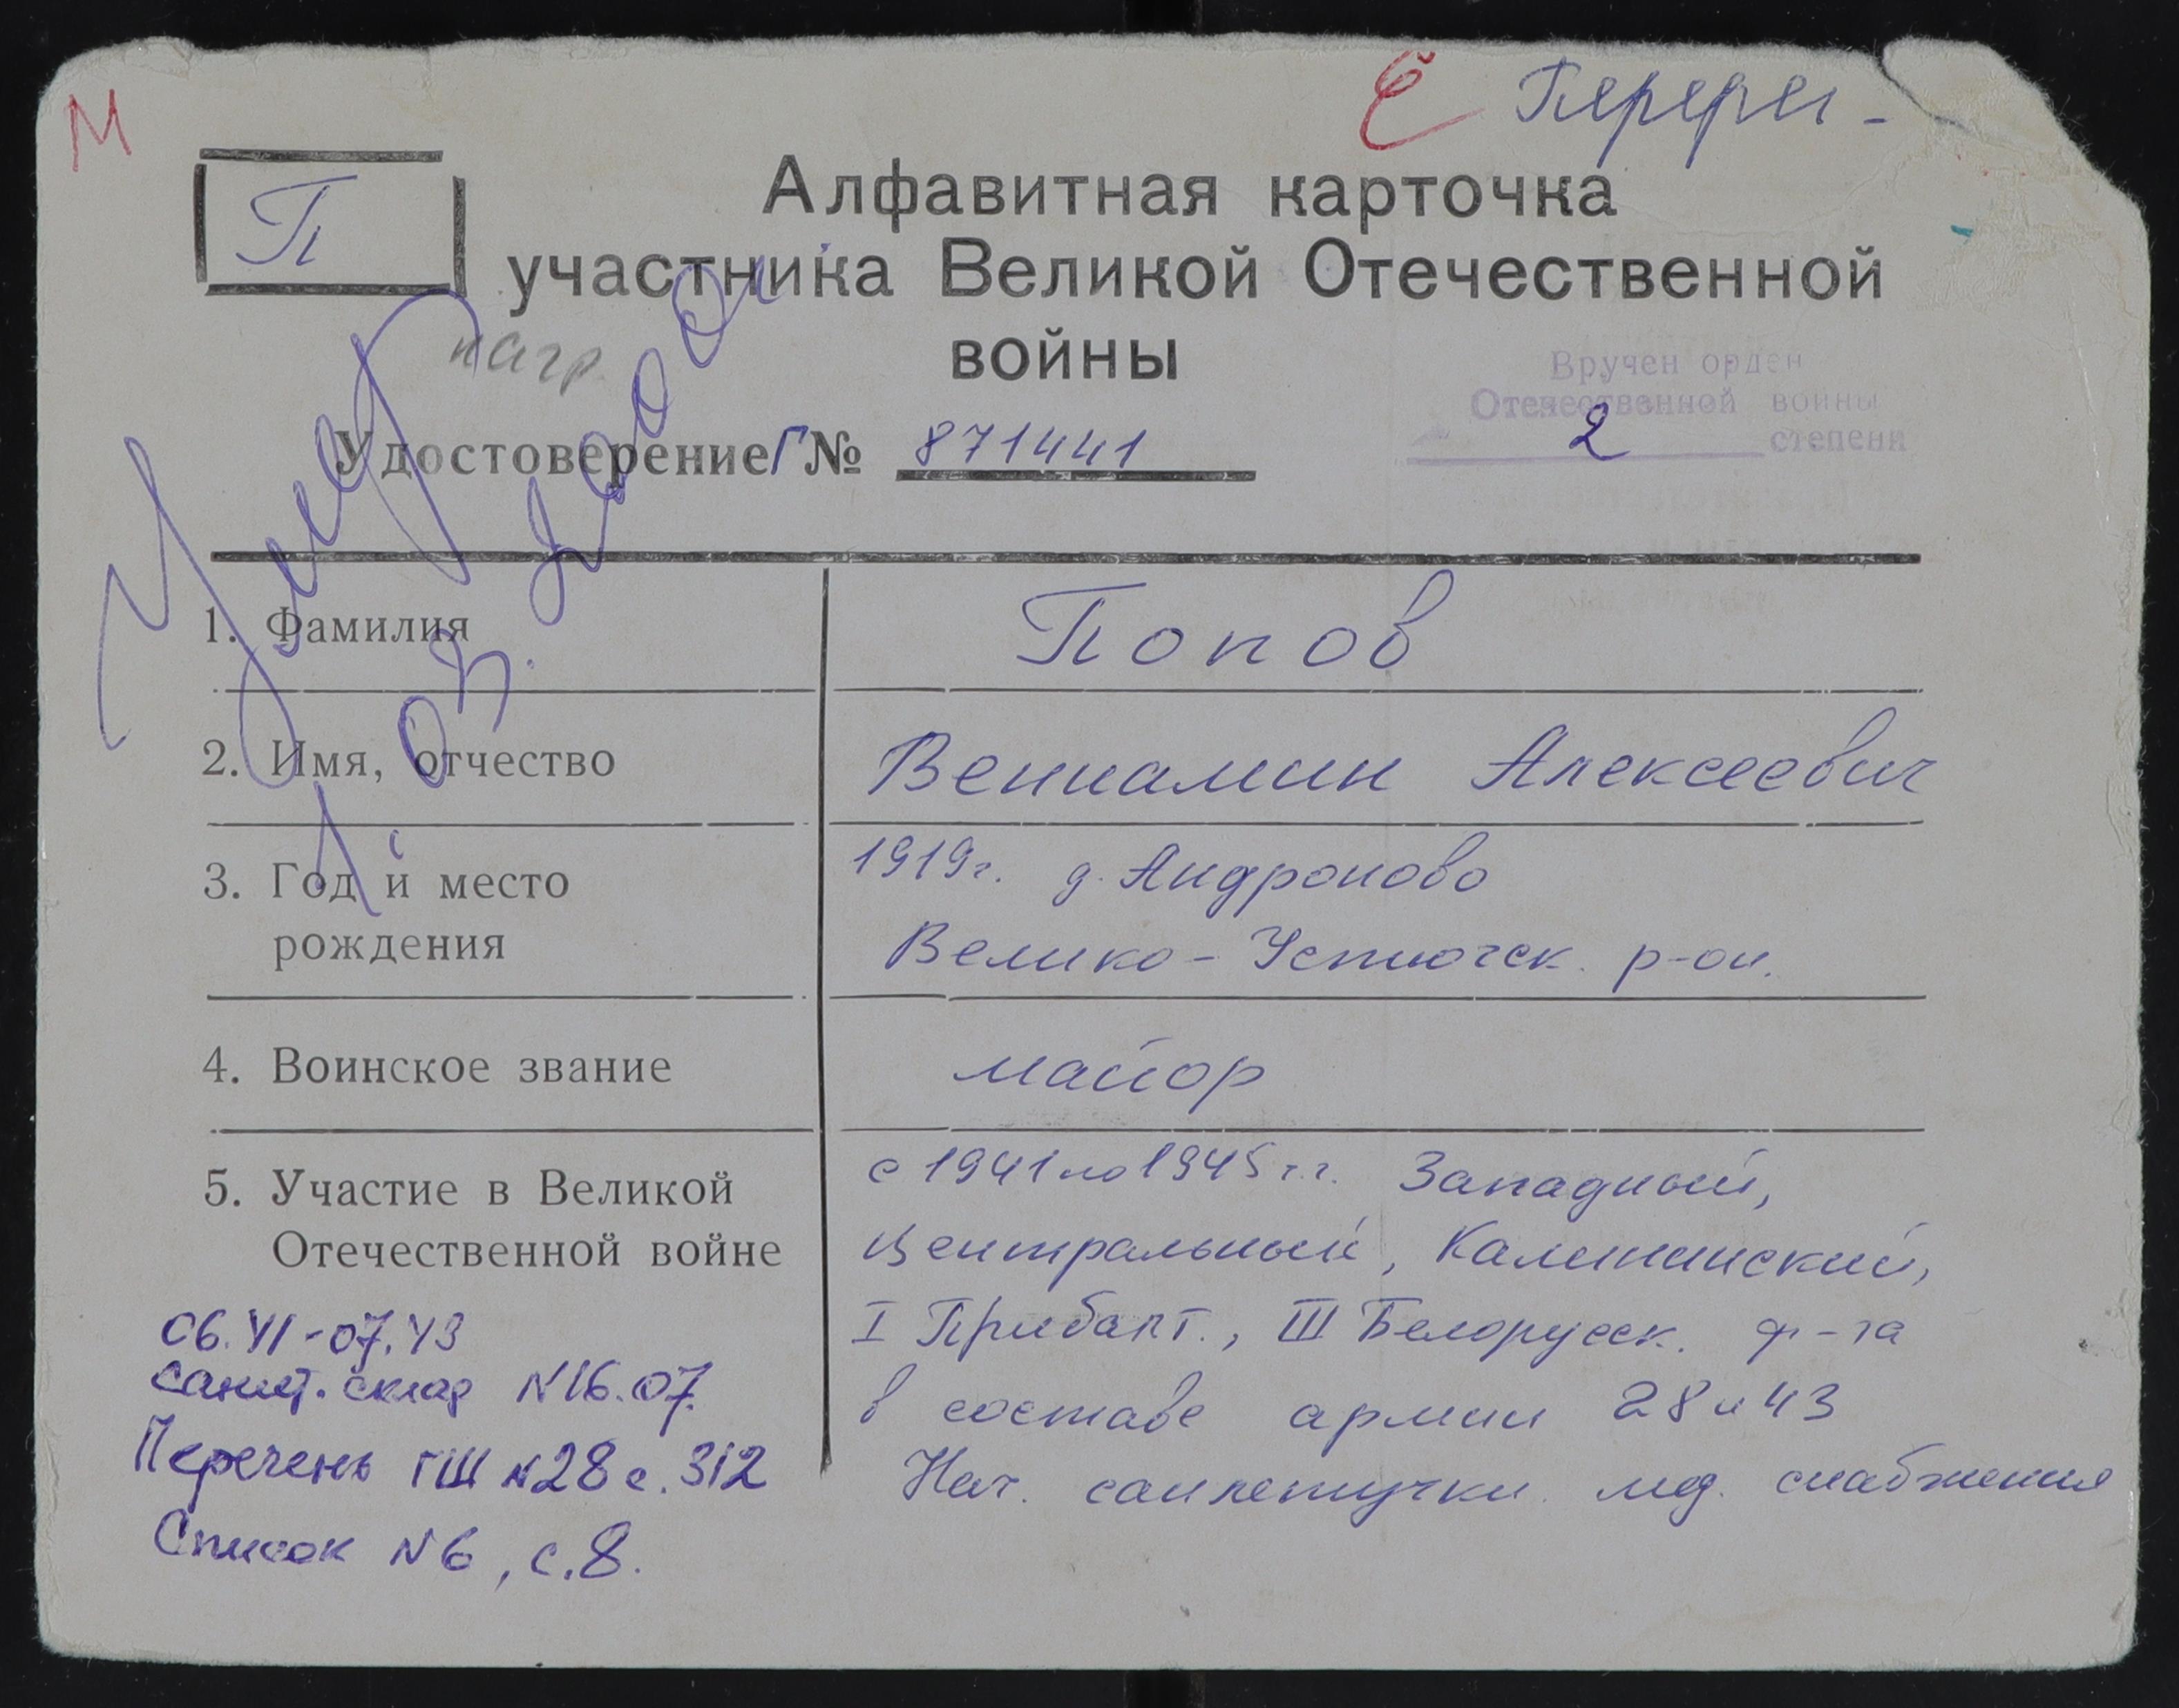 М
П
Алфавитная карточка
участника Великой Отечественной
войны
нагр.
Вручен орден
Отечественной войны
2 степени
Удостоверение Г № 871441
Умер
03. 2000г
1. Фамилия Попов
2. Имя, отчество Вениамин Алексеевич
3. Год и место 1919г. д. Андроново
рождения Велико-Устюгск. р-он.
4. Воинское звание майор
5. Участие в Великой с 1941 по 1945 г.г. Западный,
Отечественной войне Центральный, Калининский,
I Прибалт., III Белорусск. ф-та
в составе армии 28 и 43
Нач. санлетучки мед. снабжения
06.41-07.43
санит. склад №16.07.
Перечень ГШ №28 с. 312
Список №6, с.8.